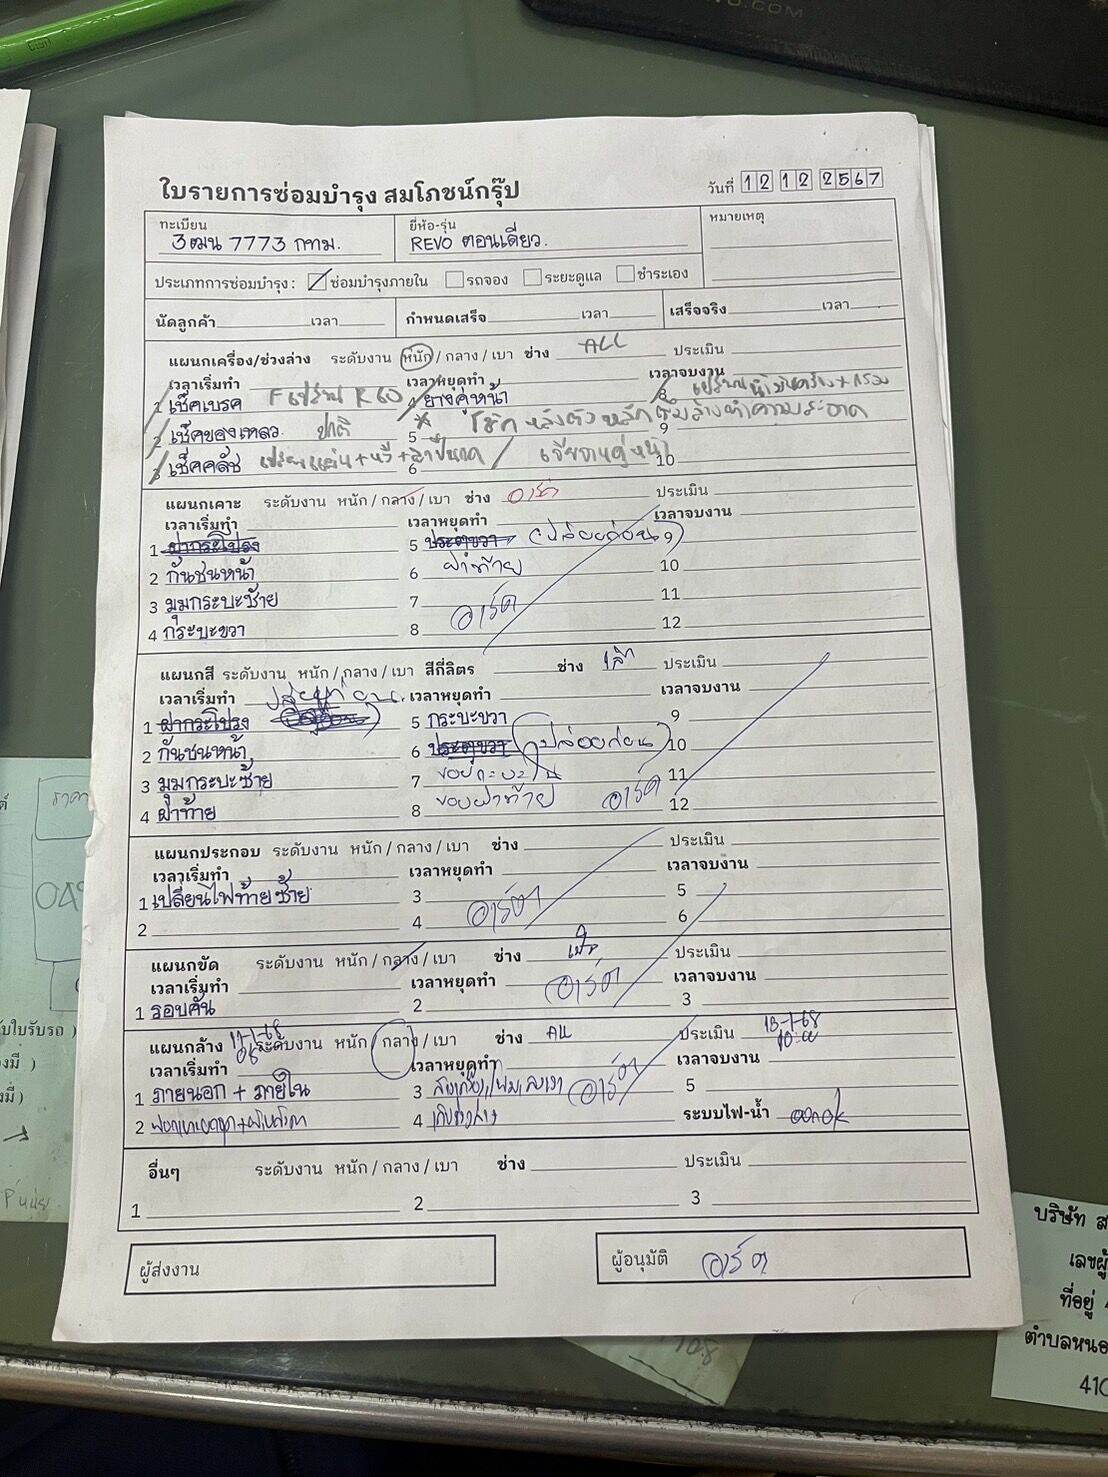 ใบรายการซ่อมบำรุง สมโภชน์กรุ๊ป
วันที่ 12 12 2567
ทะเบียน
3ฒน 7773 กทม.
ยี่ห้อ-รุ่น
REVO ตอนเดียว.
หมายเหตุ
ประเภทการซ่อมบำรุง : ซ่อมบำรุงภายใน รถจอง ระยะดูแล ชำระเอง
นัดลูกค้า เวลา กำหนดเสร็จ เวลา เสร็จจริง เวลา
แผนกเครื่อง/ช่วงล่าง ระดับงาน หนัก / กลาง / เบา ช่าง ALL ประเมิน
เวลาเริ่มทำ เวลาหยุดทำ เวลาจบงาน
1 เช็คเบรค F R 60 4 ยางคู่หน้า 8
2 เช็คของเหลว ปกติ 5 โช๊ค หลัง 9
3 เช็คคลัช 6 เจียจานคู่หน้า 10
แผนกเคาะ ระดับงาน หนัก / กลาง / เบา ช่าง อาร์ต ประเมิน
เวลาเริ่มทำ เวลาหยุดทำ เวลาจบงาน
1 ฝากระโปรง 5 ประตูขวา (ปล่อยก่อน) 9
2 กันชนหน้า 6 ฝาท้าย 10
3 มุมกระบะซ้าย 7 11
4 กระบะขวา 8 อาร์ต 12
แผนกสี ระดับงาน หนัก / กลาง / เบา สีกี่ลิตร ช่าง ประเมิน
เวลาเริ่มทำ ปล่อยก่อน เวลาหยุดทำ เวลาจบงาน
1 ฝากระโปรง 5 กระบะขวา 9
2 กันชนหน้า 6 ประตูขวา (ปล่อยก่อน) 10
3 มุมกระบะซ้าย 7 11
4 ฝาท้าย 8 ขอบฝาท้าย อาร์ต 12
แผนกประกอบ ระดับงาน หนัก / กลาง / เบา ช่าง ประเมิน
เวลาเริ่มทำ เวลาหยุดทำ เวลาจบงาน
1 เปลี่ยนไฟท้ายซ้าย 3 5
2 4 อาร์ต 6
แผนกขัด ระดับงาน หนัก / กลาง / เบา ช่าง ประเมิน
เวลาเริ่มทำ เวลาหยุดทำ อาร์ต เวลาจบงาน
1 รอบคัน 2 3
แผนกล้าง ระดับงาน หนัก / กลาง / เบา ช่าง ALL ประเมิน 13-1-68
เวลาเริ่มทำ เวลาหยุดทำ เวลาจบงาน
1 ภายนอก + ภายใน 3 อาร์ต 5
2 4 ระบบไฟ-น้ำ
อื่นๆ ระดับงาน หนัก / กลาง / เบา ช่าง ประเมิน
1 2 3
ผู้ส่งงาน
ผู้อนุมัติ อาร์ต
บริษัท ส
เลขผู้
ที่อยู่
ตำบลหนอ
410